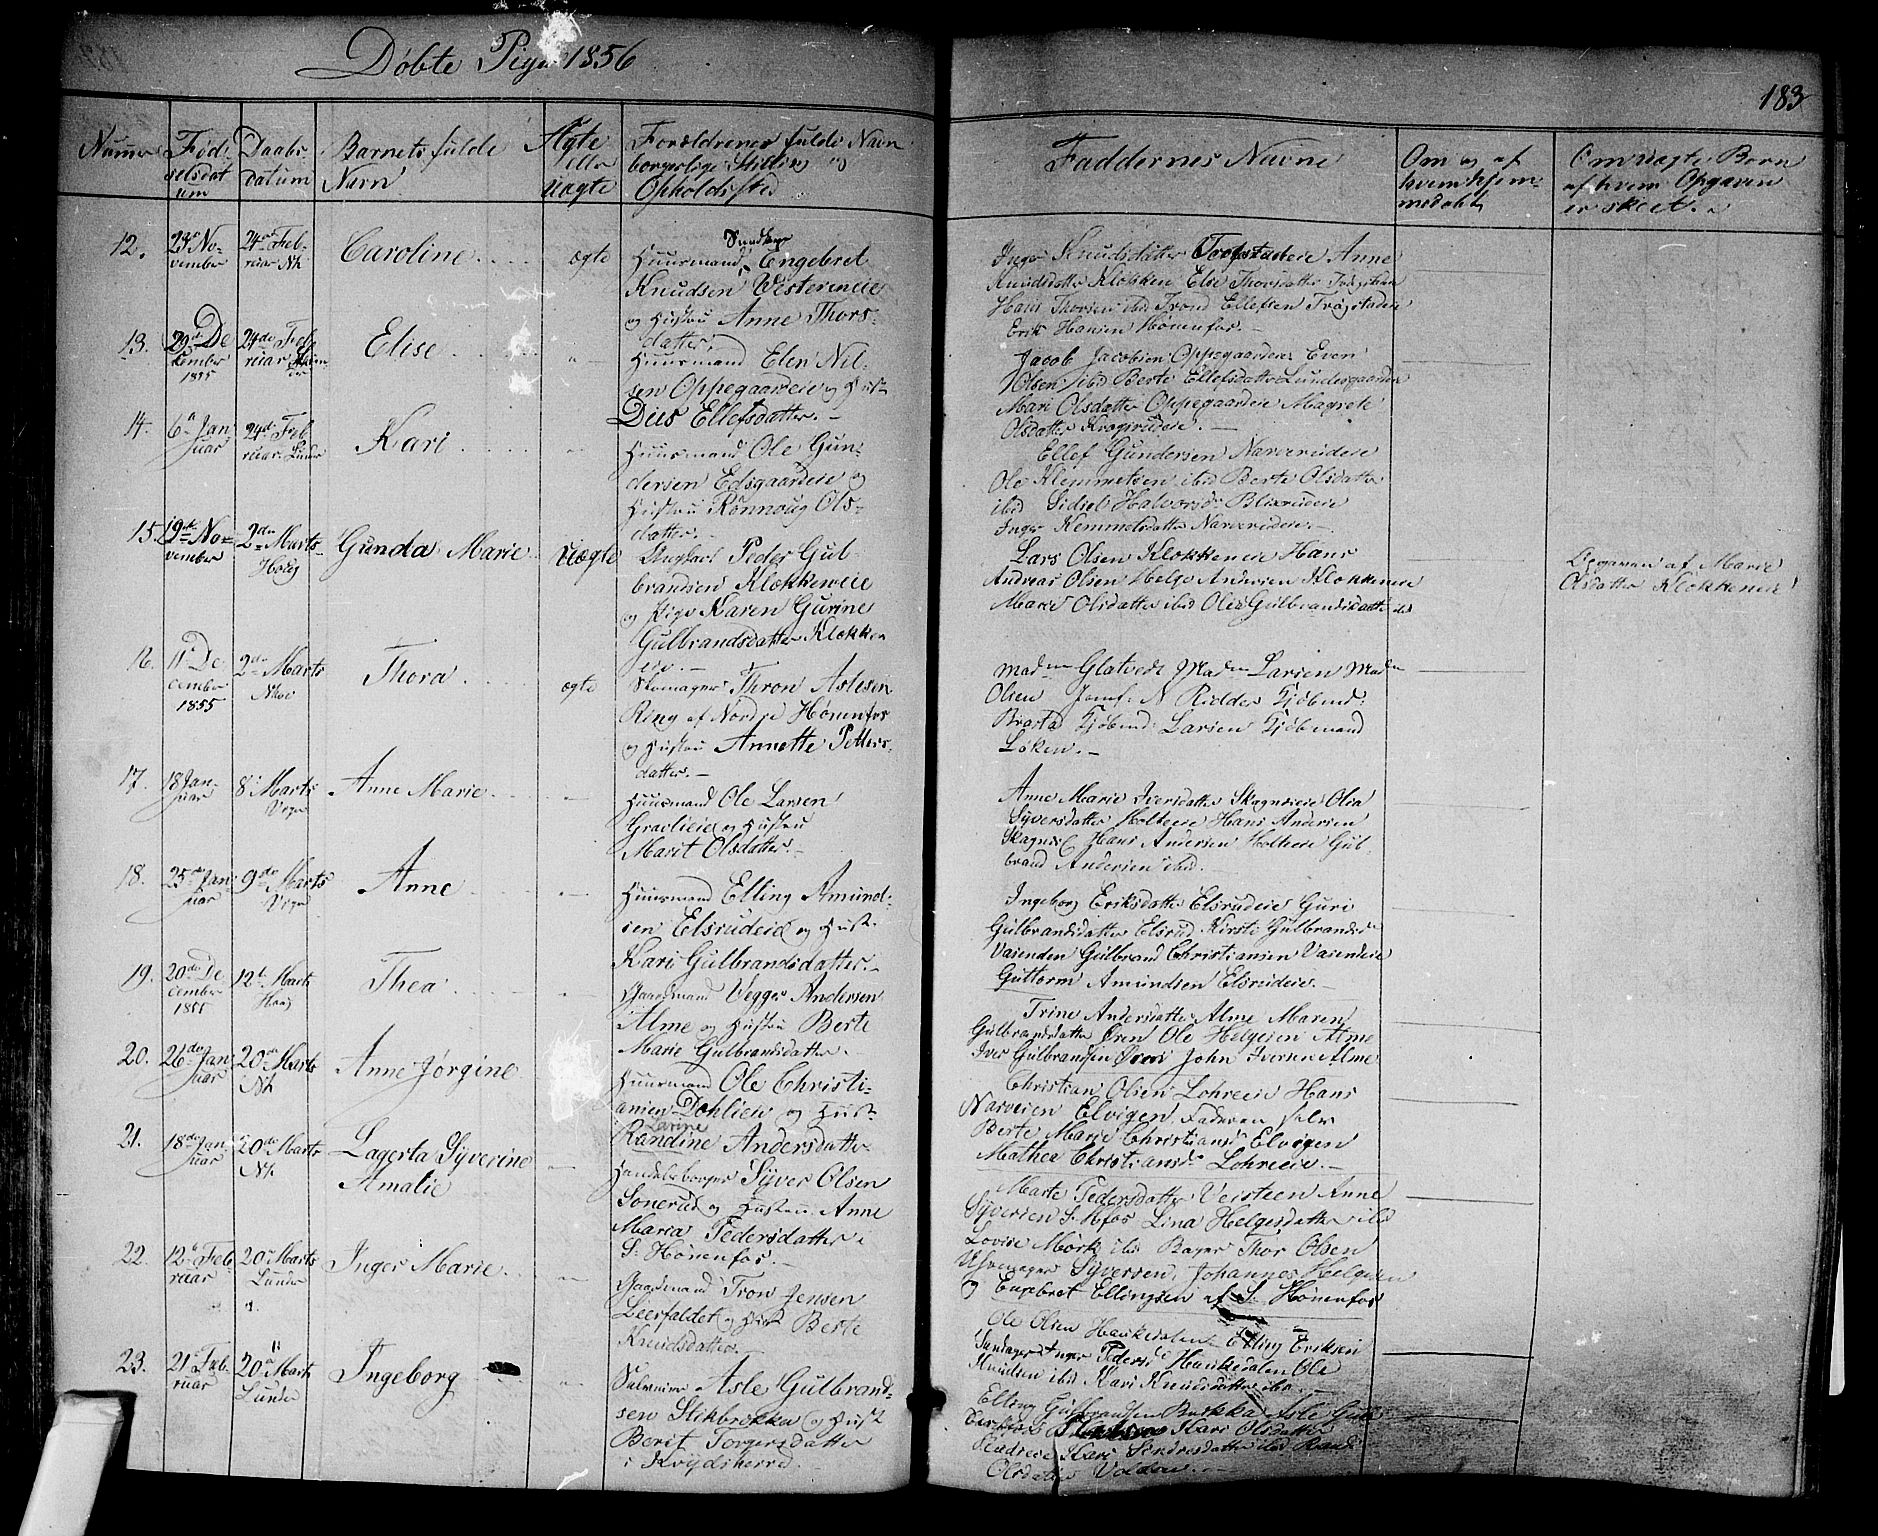 Døbte Piger 1856
183
Numer
Fød-
selsdat
um
Daabs-
datum
Barnets fulde
Navn
Ægte
eller
Uægte
Forældrenes fulde Navn
borgerlige Stilling og
Opholdssted
Faddernes Navne
Om og af
hvem hjem-
medøbt
Om uægte Børn
af hvem Opgaven
er skeet.
12.
23de No-
vember
24de Feb-
ruar Nh
Caroline
ægte
Huusmand Engebret
Knudsen Vestereneie
og Hustru Anne Thors-
datter
Inger Knudsdatter Anne
Knudsdatter Klokken Else Thorsdatter
Hans Thorsen ibid Trond Ellefsen
Erik Hansen Hønenfos.
13.
29de De
cember
1855
24de Feb
ruar
Elise
"
Huusmand Elen Nil-
sen Oppegaardeie og Hust
Ellefsdatter.
Jacob Jacobsen Oppegaardeie Even
Olsen ibid Berte Ellefsdatter Lundesgaarden
Mari Olsdatter Oppegaardeie Magrete
Olsdatter
14.
6te Jan
uar
24de Feb
ruar Lunder
Kari
"
Huusmand Ole Gun-
dersen Edsgaardeie og
Hustru Rønnoug Ols-
datter.
Ellef Gundersen Narverudeie
Ole Klemmetsen ibid Berte Olsdatter
ibid Sidsel Halvorsdr
Inger Kemmelsdatter Narverudeie.
15.
19de No-
vember
2den Marts
Houg
Gunda Marie
uægte
Ungkarl Peder Gul-
brandsen Klokkeneie
og Pige Karen Gurine
Gulbrandsdatter Klokken
eie.
Lars Olsen Klokkeneie Hans
Andreas Olsen Helge Andersen Klokkeneie
Marie Olsdatter ibid Olea Gulbrandsdatter ibid
Opgaven af Marie
Olsdatter Klokkeneie
16.
11te De
cember
1855
2den Marts
Thora
ægte
Skomager Thron Aslesen
Ring af Nordre Hønenfos
og Hustru Annette Petters-
datter.
Mad Glatvedt Mad Larsen Mad
Olsen Jomf. N Ridder Kjøbmd:
Kjøbmd: Larsen Kjøbmand
Løken.
17.
18 Jan-
uar
8: Marts
Anne Marie
Huusmand Ole Larsen
og Hustru
Marit Olsdatter.
Anne Marie Iversdatter Olia
Syversdatter Holteeie Hans Andersen
Hans Andersen Holteeie Gul-
brand Andersen ibid.
18.
25de Jan:
uar
9de Marts
Anne
Huusmand Elling Amund-
sen Elsrudeie og Hust.
Kari Gulbrandsdatter.
Ingeborg Eriksdatter Elsrudeie Guri
Gulbrandsdatter Elsrud Kirsti Gulbrandsdr
Vasenden Gulbrand Christiansen Vasendeie
Guttorm Amundsen Elsrudeie.
19.
20de De
cember
1855
12te Marts
Haug
Thea
Gaardmand Vegger Andersen
Alme og Hustru Berte
Marie Gulbrandsdatter.
Trine Andersdatter Alme Maren
Gulbrandsdatter Ole Helgesen Alme
Iver Gulbrandsen John Iversen Alme
20.
26de Jan:
uar
20de Marts
Nh
Anne Jørgine
Huusmand Ole Christi-
ansen og Hust
Larine
Randine Andersdatter
Christian Olsen Lohreeie Hans
Elvigen Faderen selv
Berte Marie Christiansd Elvigen
Mathea Christiansdr Lohreeie.
21.
18de Jan
uar
20de Marts
Nh.
Lagerta Syverine
Amalie
Handelsborger Syver Olsen
Sonerud og Hustru Anne
Maria Pedersdatter i
S. Hønenfos.
Marte Pedersdatter Anne
Syversen S. Hfos Lina Helgesdatter ibd
Lovise Mørk ibd Bager Thor Olsen
Syversen, Johannes Helgesen
og Engebret Ellingsen af S. Hønenfos
22.
12te Feb-
ruar
20de Marts
Lunder
Inger Marie
Gaardmand Tron Jensen
Leerfaldet og Hust Berte
Knudsdatter.
Ole Olsen Haukedalen Elling Eriksen
Inger Pedersd Haukedalen Ole
Knudsen ibid Kari Knudsdatter ibd.
23.
21de Feb.
ruar
20de Marts
Lunder
Ingeborg
Asle Gulbrand-
sen Stikbrokka og Hust
Berit Torgersdatter
i Krydsherred.
Elling Gulbrandsen Asle Gul-
Kari Olsdatter
Kari Sindresdatter ibd
Olsdatter